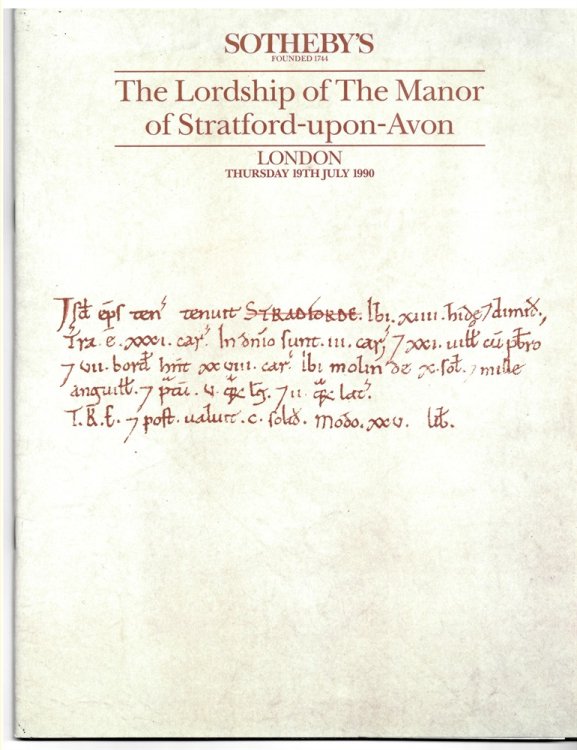 SOTHEBY'S
FOUNDED 1744
The Lordship of The Manor
of Stratford-upon-Avon
LONDON
THURSDAY 19TH JULY 1990
Isd̄ ep̄s ten' tenuit STRADFORDE. Ibi. xiiii. hidę 7 dimid̄.
T̄ra. ē. xxxi. car'. In dn̄io sunt. iii. car', 7 xxi. uill̄s cū p̄bro
7 vii. bord̄ hn̄t xxviii. car'. Ibi molin̄ de x. sol̄. 7 mille
anguill̄. 7 p̄tū. v. q̄rę lḡ. 7 ii. q̄rę lat'.
T.R.E. 7 post. ualuit. c. solid̄. Modo. xxv. lib̄.